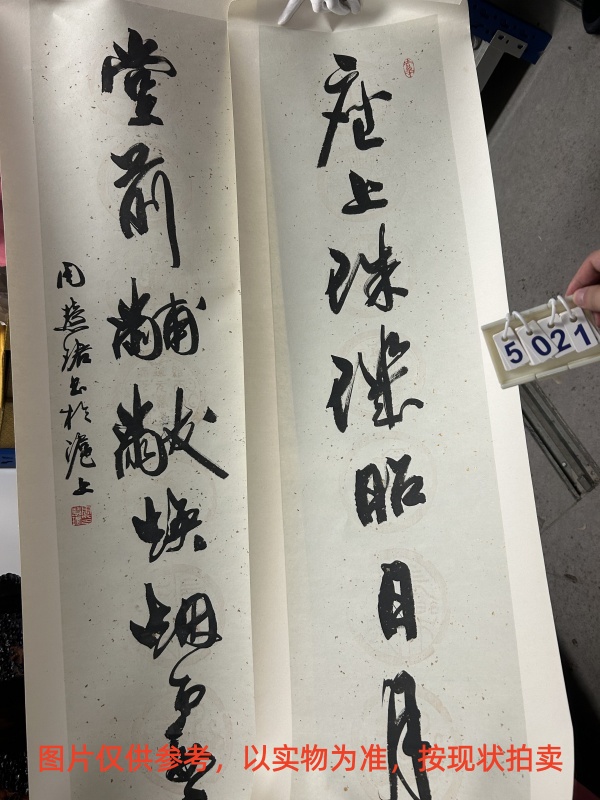 座上珠璣昭日月
堂前黼黻焕烟霞
周慧珺书於滬上
5021
图片仅供参考，以实物为准，按现状拍卖